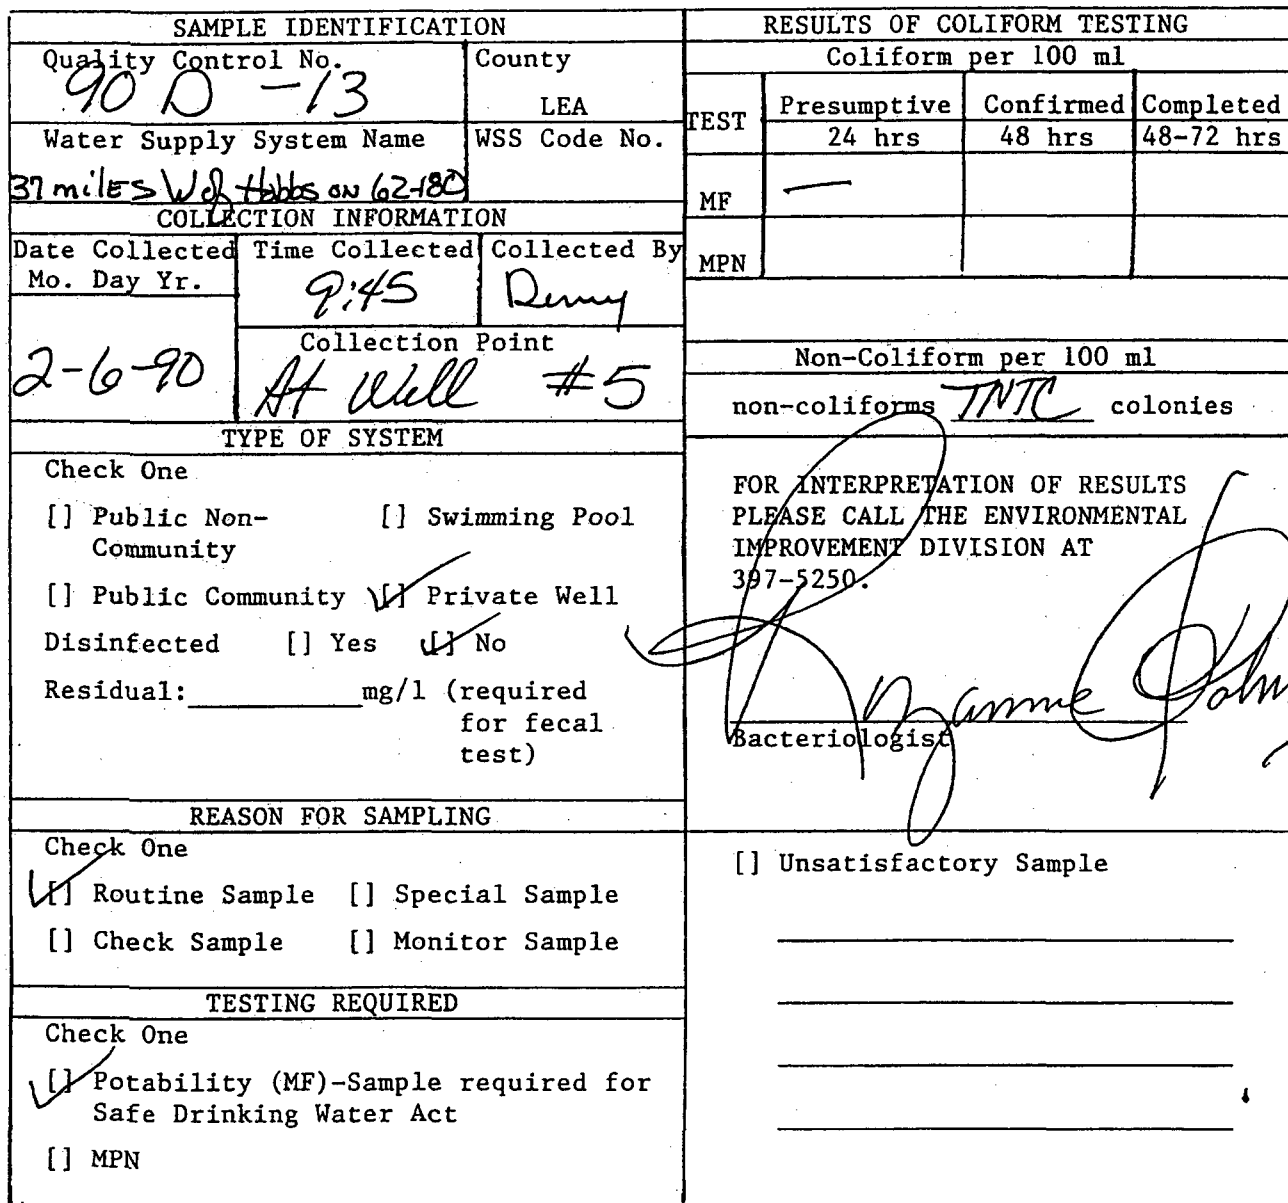 SAMPLE IDENTIFICATION
Quality Control No.
90 D -13
County
LEA
Water Supply System Name
37 miles W of Hobbs on 62-180
WSS Code No.
COLLECTION INFORMATION
Date Collected
Mo. Day Yr.
2-6-90
Time Collected
9:45
Collected By
Collection Point
At Well #5
TYPE OF SYSTEM
Check One
[] Public Non-
Community
[] Swimming Pool
[] Public Community
[] Private Well
Disinfected [] Yes [] No
Residual: mg/l (required
for fecal
test)
REASON FOR SAMPLING
Check One
[] Routine Sample [] Special Sample
[] Check Sample [] Monitor Sample
TESTING REQUIRED
Check One
[] Potability (MF)-Sample required for
Safe Drinking Water Act
[] MPN
RESULTS OF COLIFORM TESTING
Coliform per 100 ml
TEST
Presumptive Confirmed Completed
24 hrs 48 hrs 48-72 hrs
MF —
MPN
Non-Coliform per 100 ml
non-coliforms TNTC colonies
FOR INTERPRETATION OF RESULTS
PLEASE CALL THE ENVIRONMENTAL
IMPROVEMENT DIVISION AT
397-5250.
Bacteriologist
[] Unsatisfactory Sample